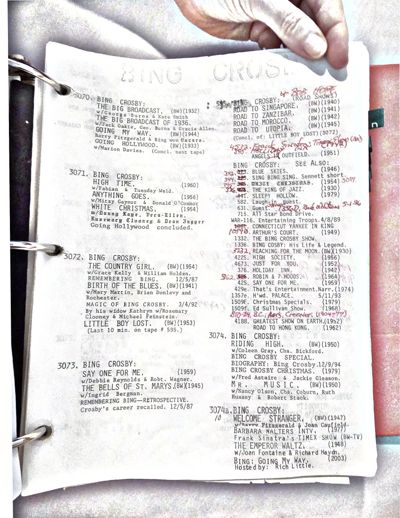 BING CROSBY
3070. BING CROSBY:
THE BIG BROADCAST. (BW)(1932)
w/George Burns & Kate Smith
THE BIG BROADCAST OF 1936.
w/Jack Oakie, Geo. Burns & Gracie Allen.
GOING MY WAY. (BW)(1944)
Barry Fitzgerald & Rise Stevens.
GOING HOLLYWOOD. (BW)(1933)
w/Marion Davies. (Concl. next tape)
3071. BING CROSBY:
HIGH TIME. (1960)
w/Fabian & Tuesday Weld.
ANYTHING GOES. (1956)
w/Mitzy Gaynor & Donald O'Connor
WHITE CHRISTMAS. (1954)
w/Danny Kaye, Vera-Ellen
Rosemary Clooney & Dean Jagger
Going Hollywood concluded.
3072. BING CROSBY:
THE COUNTRY GIRL. (BW)(1954)
w/Grace Kelly & William Holden.
REMEMBERING BING. 12/5/87
BIRTH OF THE BLUES. (BW)(1941)
w/Mary Martin, Brian Donlevy and
Rochester.
MAGIC OF BING CROSBY. 3/4/92
By his widow Kathryn w/Rosemary
Clooney & Michael Feinstein.
LITTLE BOY LOST. (BW)(1953)
(Last 10 min. on tape # 595.)
3073. BING CROSBY:
SAY ONE FOR ME. (1959)
w/Debbie Reynolds & Robt. Wagner.
THE BELLS OF ST. MARYS.(BW)(1945)
w/Ingrid Bergman.
REMEMBERING BING--RETROSPECTIVE.
Crosby's career recalled. 12/5/87
BING CROSBY: (ROAD SHOWS)
ROAD TO SINGAPORE. (BW)(1940)
ROAD TO ZANZIBAR. (BW)(1941)
ROAD TO MOROCCO. (BW)(1942)
ROAD TO UTOPIA. (BW)(1945)
(Concl. of: LITTLE BOY LOST) [3072]
ANGELS IN OUTFIELD. (1951)
BING CROSBY: See Also:
BLUE SKIES. (1946)
SING BING SING. Sennett short.
(1954)
THE KING OF JAZZ. (1930)
582. Laugh
715. All Star Bond Drive.
WAR-116. Entertaining Troops. 4/8/89
CONNECTICUT YANKEE IN KING
ARTHUR'S COURT. (1949)
1332. THE BING CROSBY SHOW.
1336. BING CROSBY: His Life & Legend.
REACHING FOR THE MOON. (BW)(1930)
4225. HIGH SOCIETY. (1956)
4673. JUST FOR YOU. (1952)
376. HOLIDAY INN. (1942)
ROBIN & 7-HOODS. (1964)
425. SAY ONE FOR ME. (1959)
429a. That's Entertainment. Narr. (1974)
1357e. H'wd. PALACE. 5/11/93
1509f. Christmas Specials. (1979)
1509f. 6/Several Xmas Shows.
4188. GREATEST SHOW ON EARTH. (1952)
ROAD TO HONG KONG. (1962)
3074. BING CROSBY:
RIDING HIGH. (BW)(1950)
w/Coleen Gray, Cha. Bickford.
BING CROSBY SPECIAL.
BIOGRAPHY: Bing Crosby. 12/9/94
BING CROSBY CHRISTMAS.
w/Fred Astaire & Jackie Gleason.
MR. MUSIC. (BW)(1950)
w/Nancy Olson, Cha. Coburn, Ruth
Hussey & Robert Stack.
3074a. BING CROSBY:
WELCOME STRANGER. (BW)(1947)
w/Barry Fitzgerald & Joan Caulfield.
BARBARA WALTERS INTV. (1977)
Frank Sinatra's TIMEX SHOW (BW-TV)
THE EMPEROR WALTZ. (1948)
w/Joan Fontaine & Richard Haydn.
BING: GOING MY WAY. (2003)
Hosted by: Rich Little.